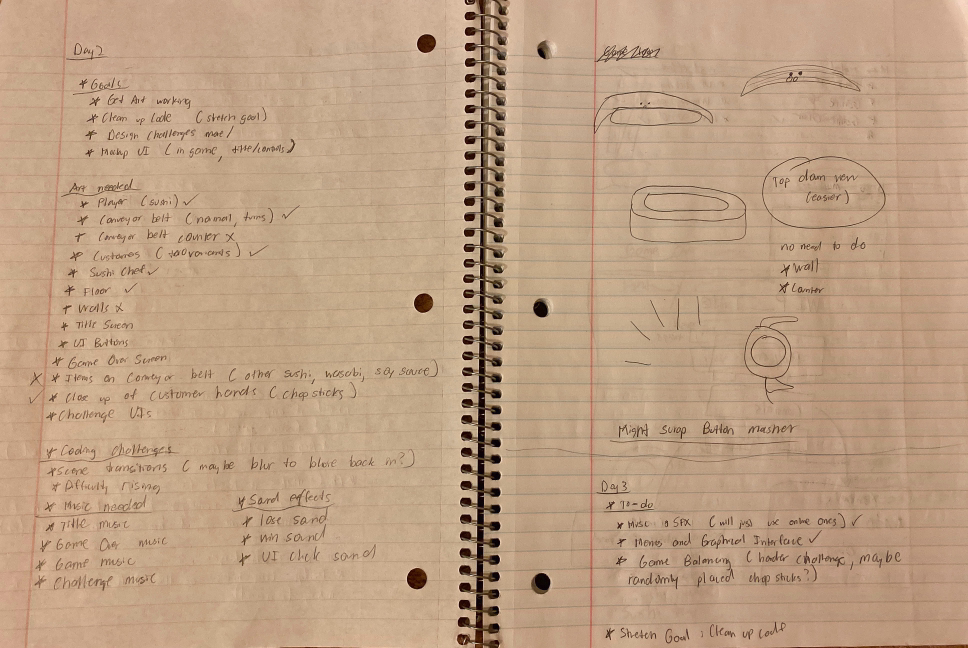 Day 2
* Goals
* Get Art working
* Clean up Code (stretch goal)
* Design Challenges
* Mockup UI (in game, title/controls)
Art needed
* Player (sushi) ✓
* Conveyor belt (normal, turns) ✓
* Conveyor belt counter x
* Customers (two variants) ✓
* Sushi Chef ✓
* Floor ✓
* Walls x
* Title Screen
* UI Buttons
* Game Over Screen
X * Items on Conveyor belt (other sushi, wasabi, soy sauce)
✓ * Close up of customer hands (chopsticks)
* Challenge UIs
* Coding challenges
* Scene transitions (maybe blur to black back in?)
* Difficulty rising
* Music needed
* Title music
* Game Over music
* Game music
* Challenge music
* Sound effects
* lose sound
* win sound
* UI click sound
Top down view
(easier)
no need to do
* Wall
* Counter
Might swap Button masher
Day 3
* To-do
* Music & SFX (will just use online ones) ✓
* Menus and Graphical Interface ✓
* Game Balancing (harder challenge, maybe
randomly placed chopsticks?)
* Stretch Goal: Clean up code